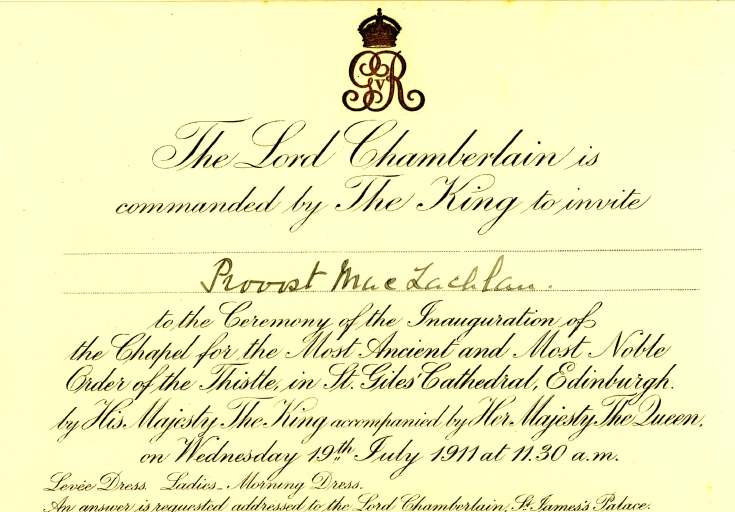 GvR
The Lord Chamberlain is
commanded by The King to invite
Provost MacLachlan.
to the Ceremony of the Inauguration of
the Chapel for the Most Ancient and Most Noble
Order of the Thistle, in St. Giles' Cathedral, Edinburgh.
by His Majesty The King accompanied by Her Majesty The Queen,
on Wednesday 19th July 1911 at 11.30 a.m.
Levée Dress. Ladies_Morning Dress.
An answer is requested addressed to the Lord Chamberlain, St. James's Palace.